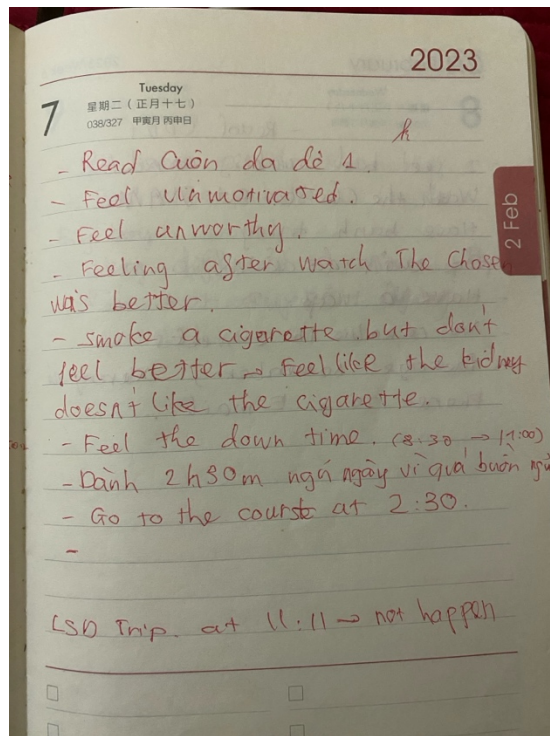 2023
Tuesday
7
星期二（正月十七）
038/327 甲寅月 丙申日
2 Feb
- Read Cuôn da dè 1.
- Feel unmotivated.
- Feel unworthy.
- Feeling after watch The Chosen
was better.
- smoke a cigarette but don't
feel better → Feel like the kidney
doesn't like the cigarette.
- Feel the down time. (8:30 → 11:00)
- Dành 2h30m ngủ ngày vì quá buồn ngủ
- Go to the course at 2:30.
-
LSD Trip. at 11:11 → not happen